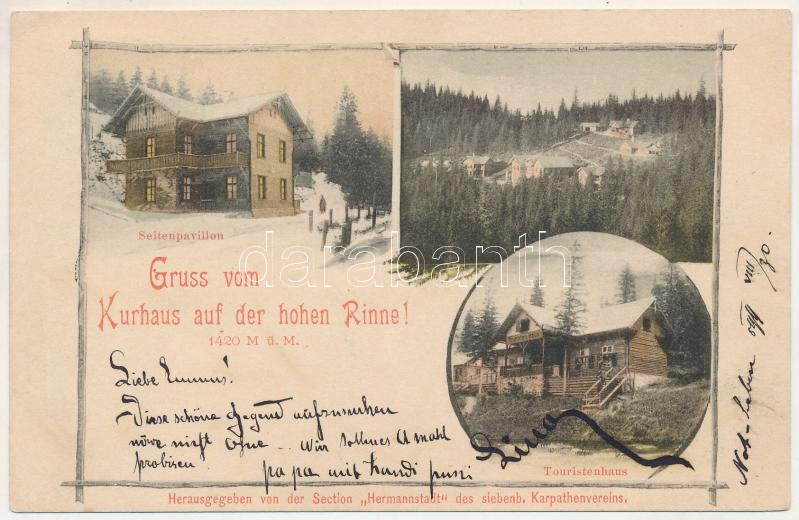 Seitenpavillon
Gruss vom
Kurhaus auf der hohen Rinne!
1420 M ü. M.
darabanth
Liebe Emmus!
Diese schöne Gegend aufzusuchen
wäre nicht ohne .. Wir sollmes Amahl
probiren.
papa mit handi pussi
Lina
Touristenhaus
899 VIII/30.
Herausgegeben von der Section „Hermannstadt" des siebenb. Karpathenvereins.